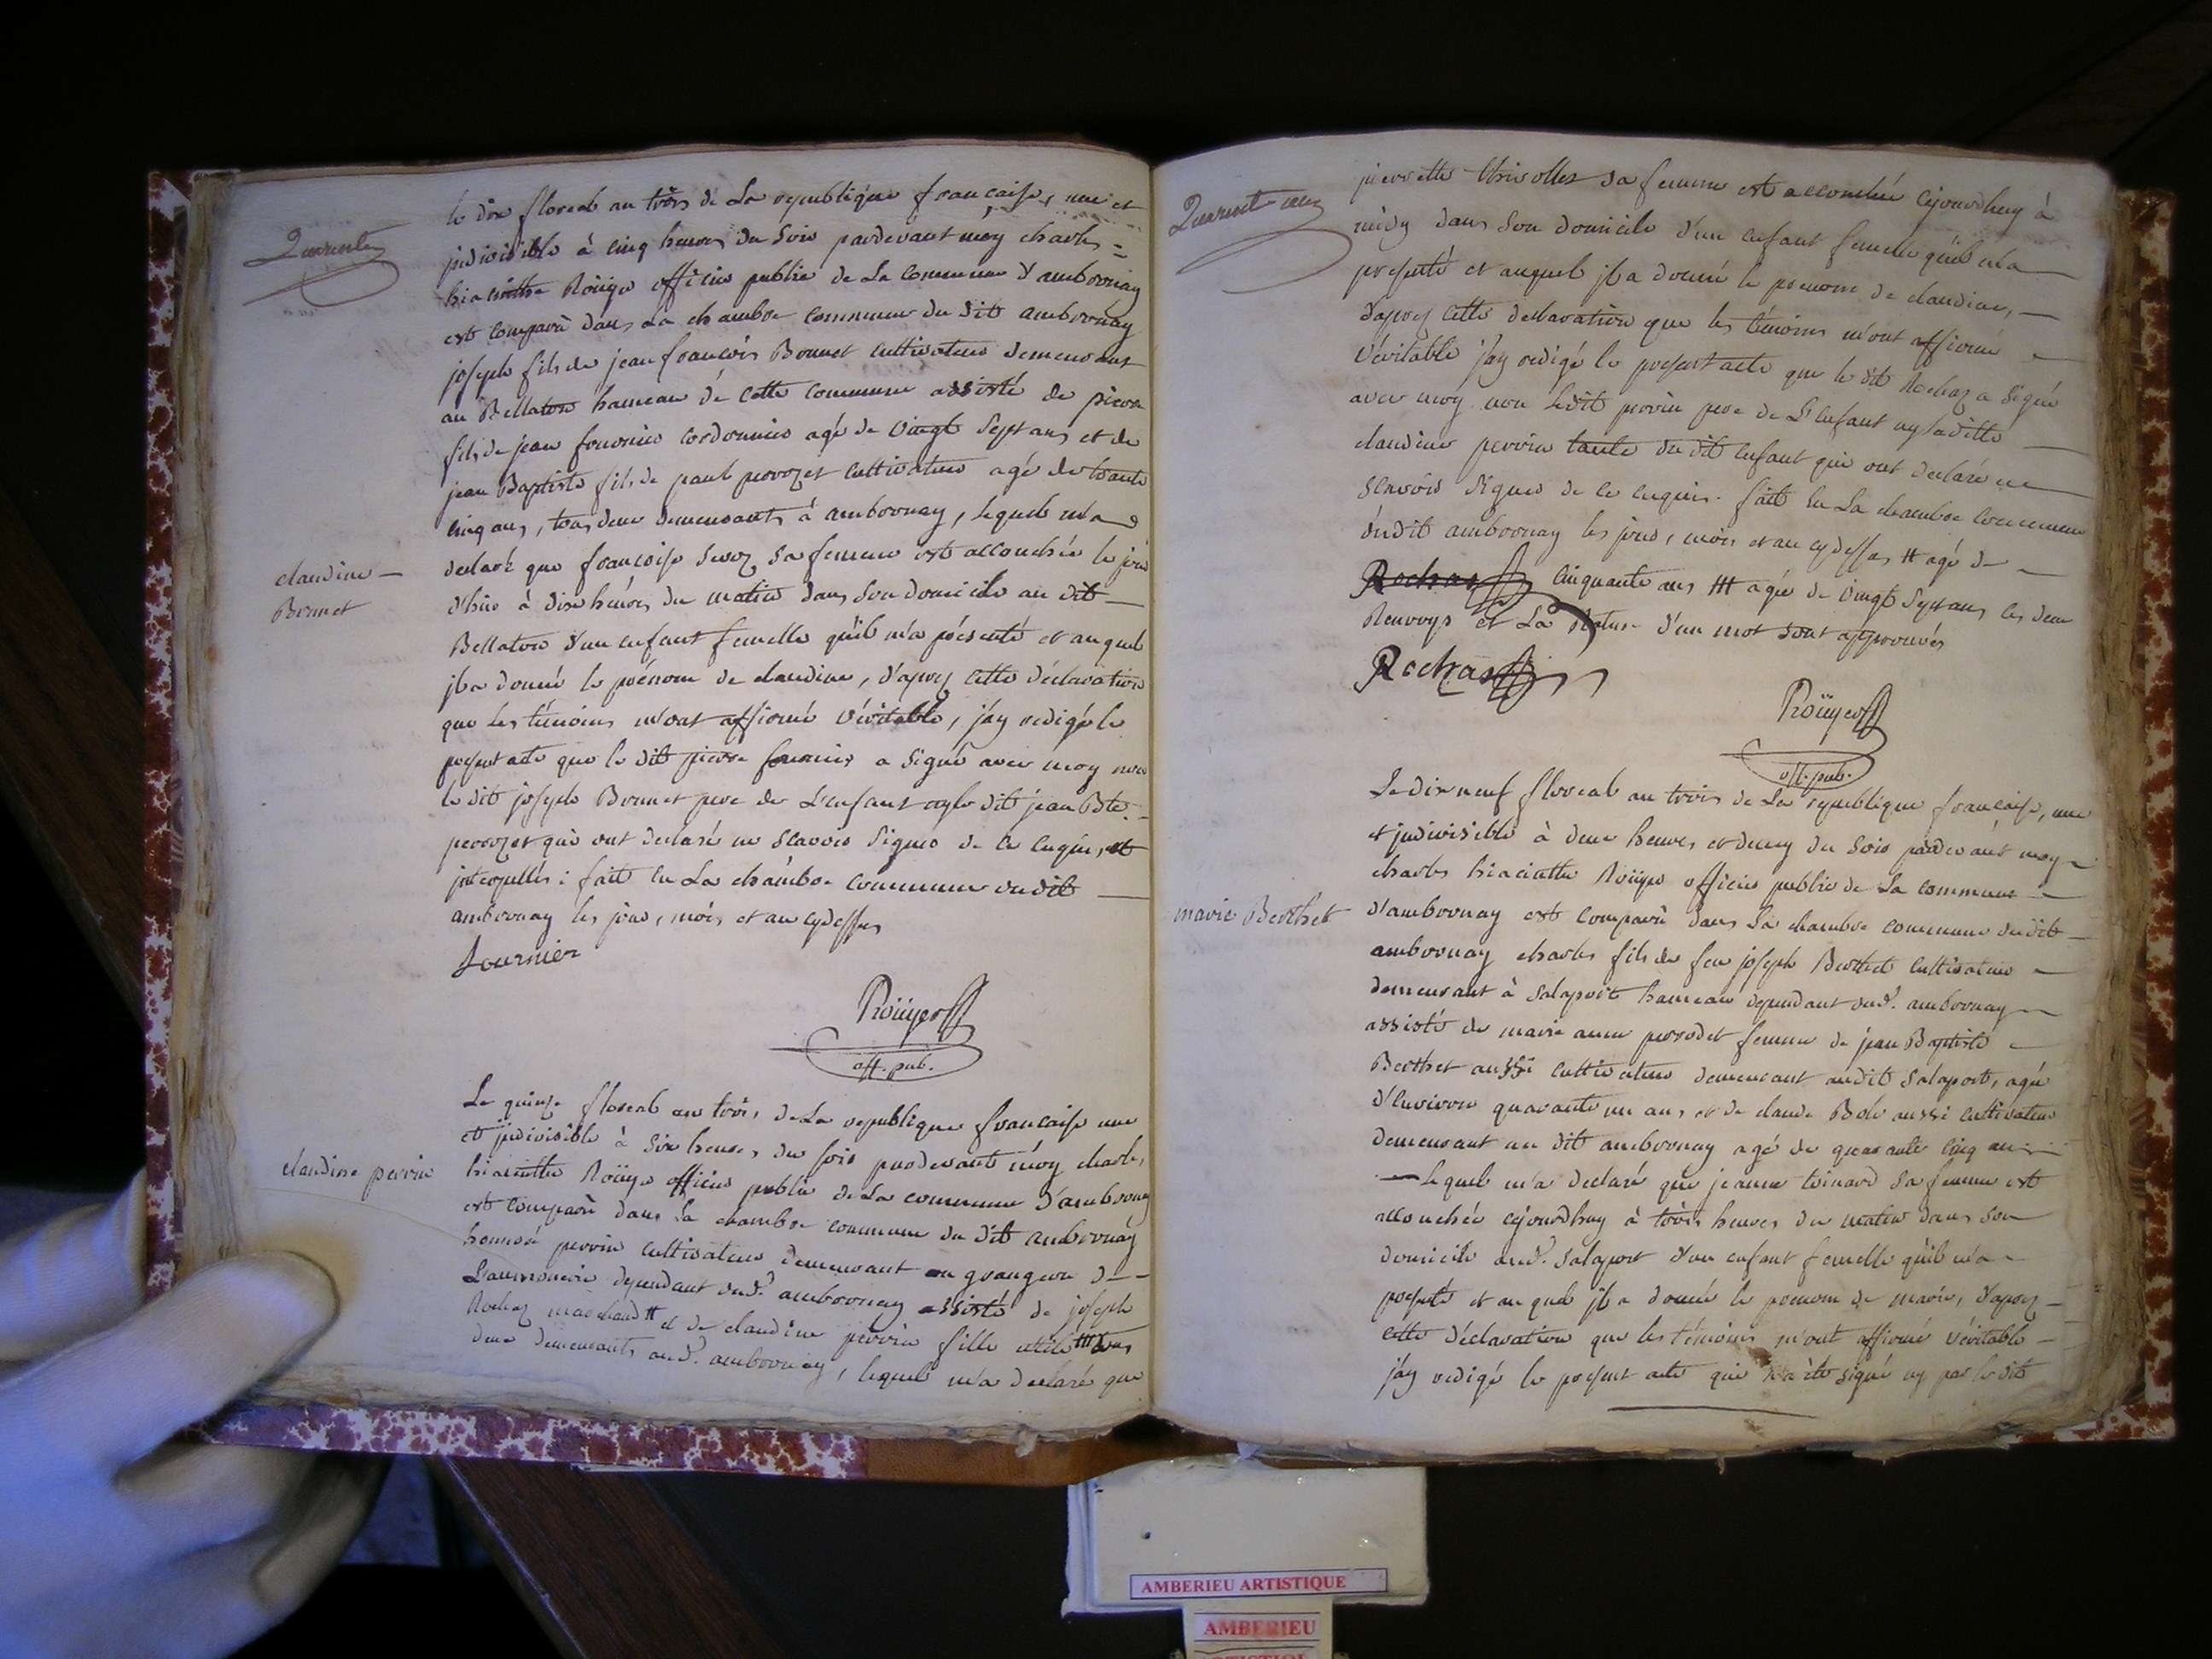 Quarante
le dix floreal an trois de La republique francaise, une et
jndivisible à cinq heures du Soir pardevant moy charles =
hiacinthe Roüyer officier public de La commune d'ambronay
est comparû dans La chambre commune du dit ambronay
joseph fils de jean francois Bonnet cultivateur demeurant
au Bellaton hameau de cette commune assisté de pierre
fils de jean fournier cordonnier agé de vingt Sept ans et de
jean Baptiste fils de paul provozet cultivateur agé de trante
cinq ans, tous deux demeurants à ambronay, lequel m'a
declaré que francoise sa femme est accouchée le jour
d'hier à dix heures du matin dans Son domicile au dit
Bellaton d'un enfant femelle qu'il m'a présenté et auquel
jl a donné le prénom de claudine, d'aprez cette déclaration
que les témoins m'ont affirmé véritable, j'ay redigé le
present acte que le dit pierre fournier a Signé avec moy non
le dit joseph Bonnet pere de L'enfant ny le dit jean Bte
provozet qui ont declaré ne Scavoir Signer de ce enquis, et
jnterpellés : fait en La chambre commune dudit
ambronay les jour, mois et an cydessus
claudine
Bonnet
fournier
Roüyer
off. pub.
Le quinze floreal an trois de La republique francaise une
et jndivisible à Six heures du soir pardevant moy charles
hiacinthe Roüyer officier public de La commune d'ambronay
est comparû dans La chambre commune du dit ambronay
honnoré perrin cultivateur demeurant en grangeon de
L'aumonerie dependant dud. ambronay assisté de joseph
Rochaz marchand # et de claudine perrin fille tous
deux demeurants aud. ambronay, lequel m'a declaré que
claudine perrin
Quarante une
pierrette sa femme est accouchée cejourdhuy à
midy dans Son domicile d'un enfant femelle qu'il m'a
presenté et auquel jl a donné le prenom de claudine,
d'aprez cette declaration que les témoins m'ont affirmé
véritable j'ay redigé le present acte que le dit Rochaz a Signé
avec moy non ledit perrin pere de L'enfant ny laditte
claudine perrin tante du dit enfant qui ont declaré ne
Scavoir Signer de ce enquis. fait en La chambre commune
dudit ambronay les jour, mois et an cydessus # agé de
Rochas cinquante ans ## agée de vingt Sept ans les deux
Renvoys et La Rature d'un mot sont approuvés
Rochas
Roüyer
off. pub.
Le dix neuf floreal an trois de La republique francaise, une
et jndivisible à deux heures et demy du Soir pardevant moy
charles hiacinthe Roüyer officier public de La commune
d'ambronay est comparû dans La chambre commune dudit
ambronay charles fils de feu joseph Berthet cultivateur
demeurant à Salaport hameau dependant dud. ambronay
assisté de marie anne perrodet femme de jean Baptiste
Berthet aussi cultivateur demeurant audit Salaport, agée
d'environ quarante un ans et de claude Bole aussi cultivateur
demeurant au dit ambronay agé de quarante cinq ans
lequel m'a declaré que jeanne toinard sa femme est
accouchée cejourdhuy à trois heures du matin dans son
domicile aud. Salaport d'un enfant femelle qu'il m'a
presenté et auquel jl a donné le prenom de marie, d'aprez
cette déclaration que les témoins m'ont affirmé véritable
j'ay redigé le present acte qui n'a été signé ny par le dit
marie Berthet
AMBERIEU ARTISTIQUE
AMBERIEU